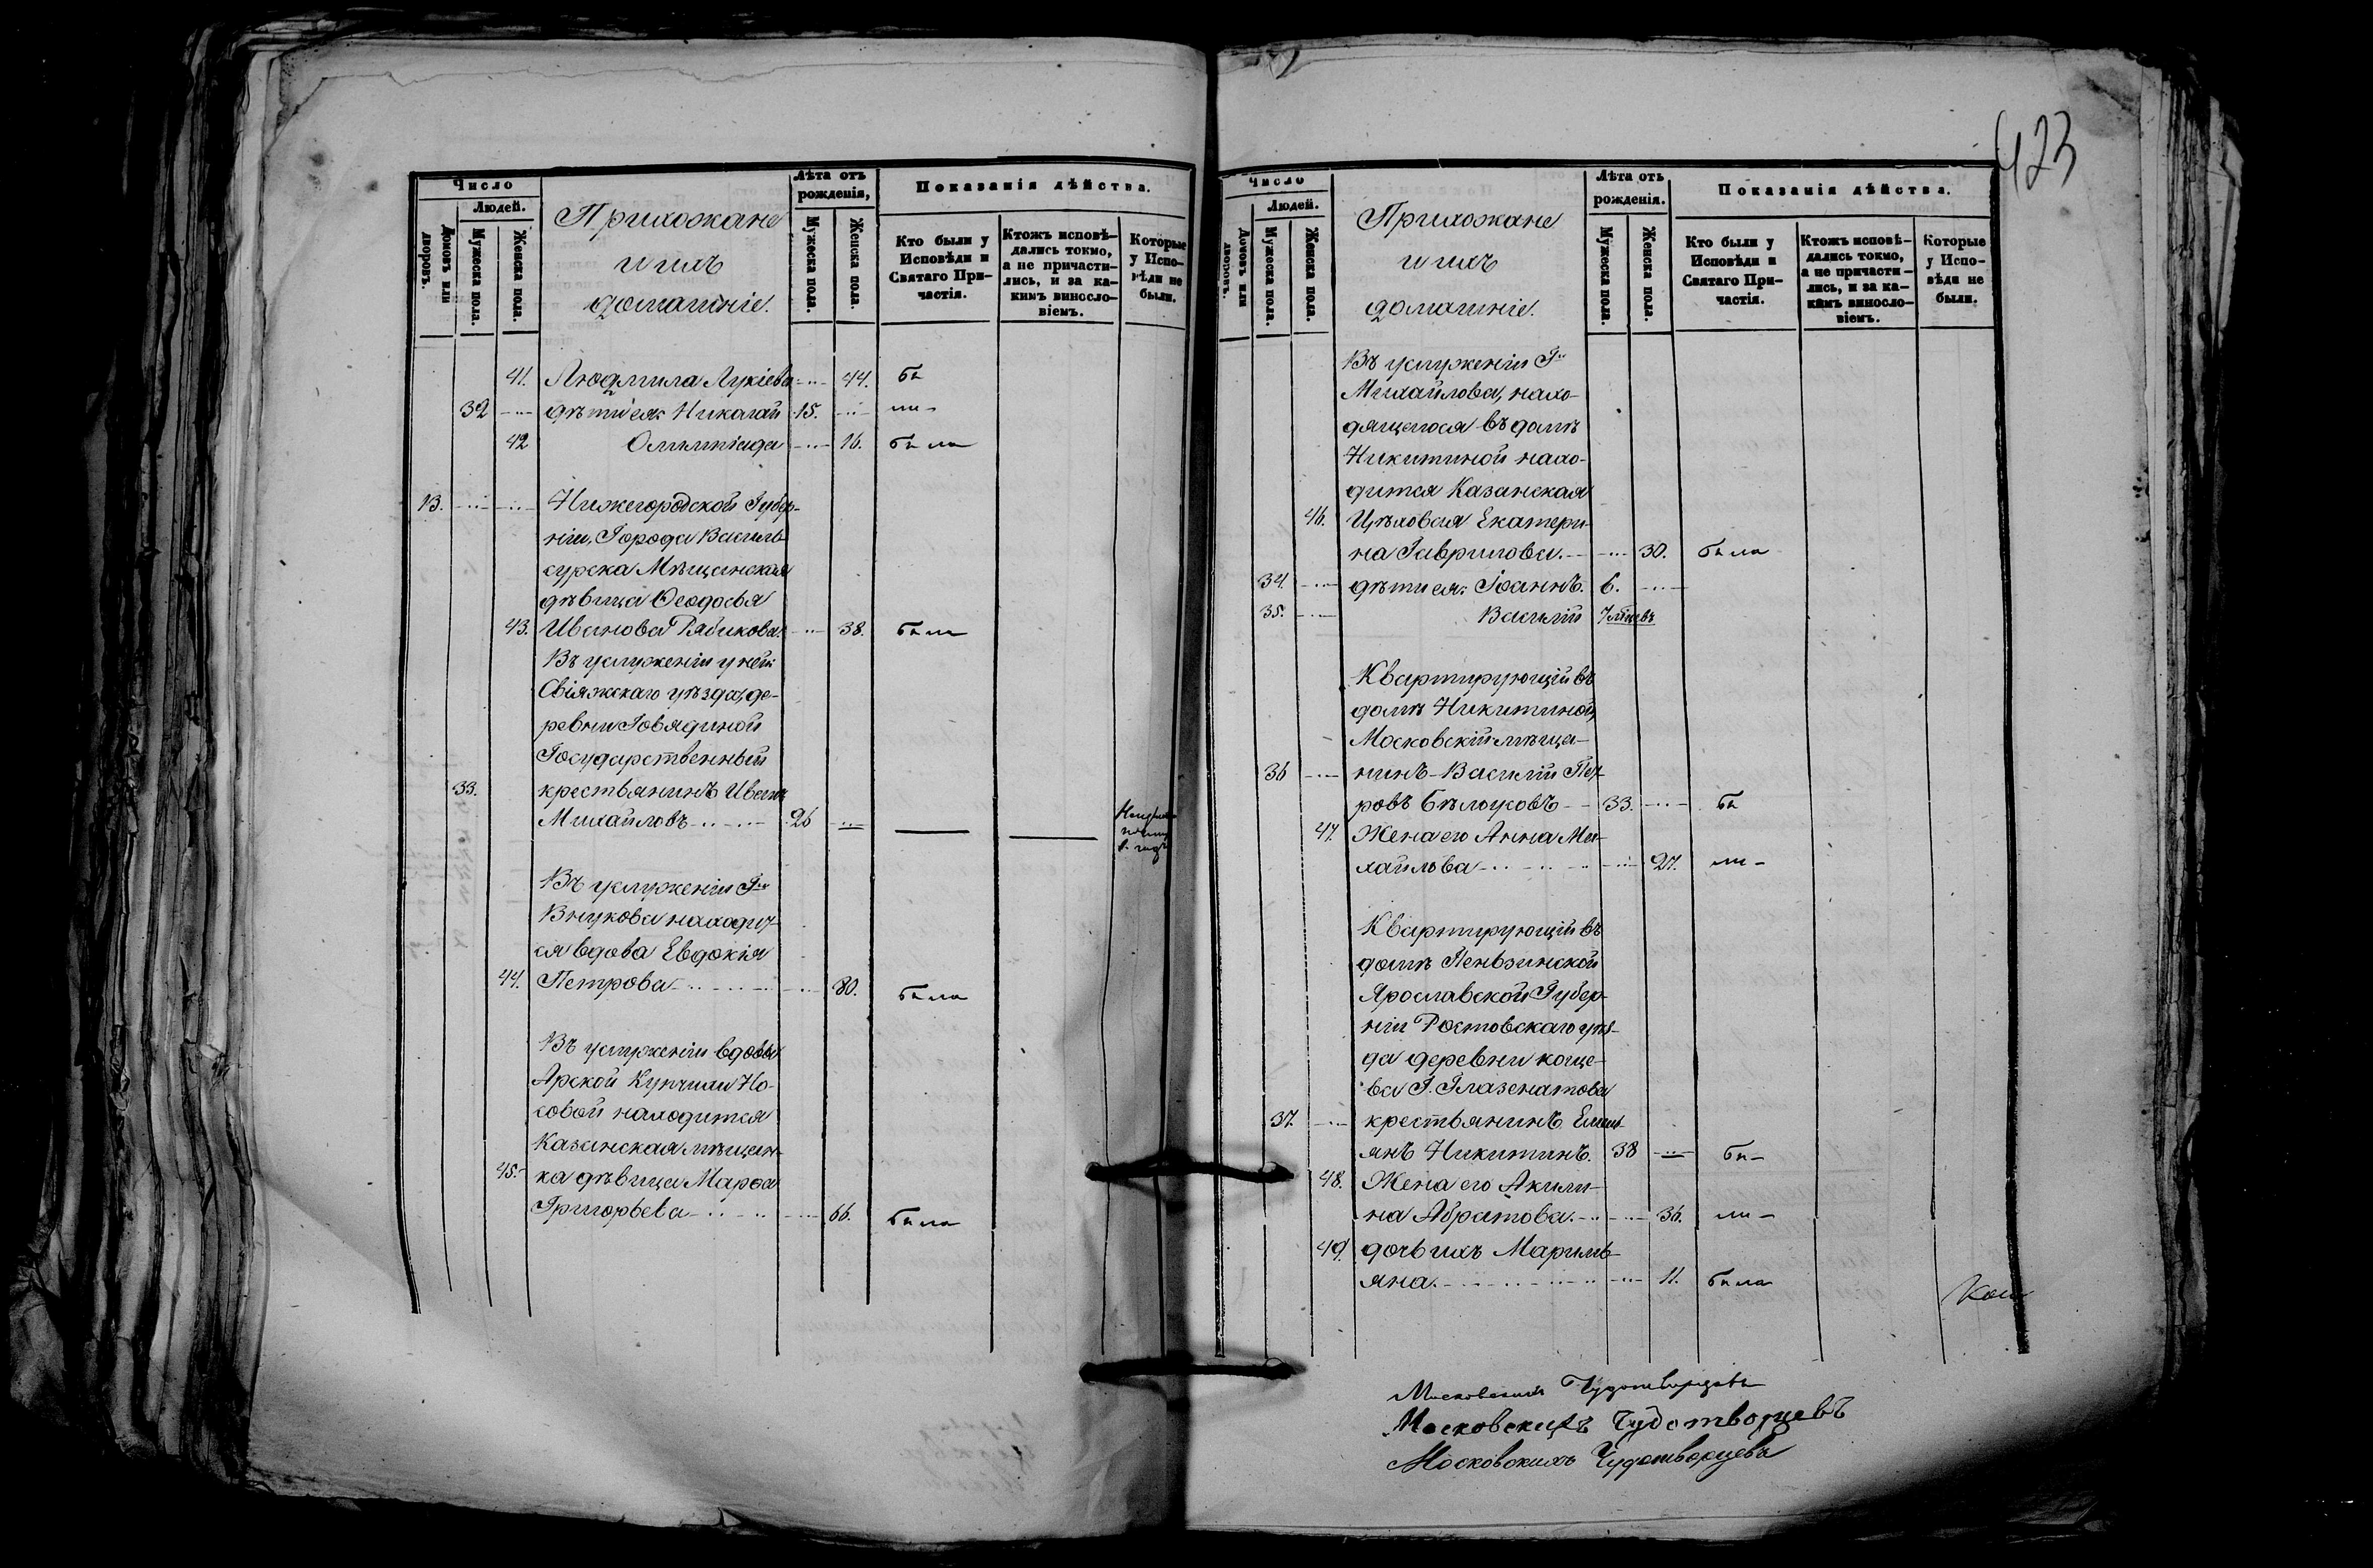 423
Число
Людей.
Домовъ или дворовъ.
Мужеска пола.
Женска пола.
Прихожане
и ихъ
домашніе.
Лѣта отъ
рожденія,
Мужеска пола.
Женска пола.
Показанія дѣйства.
Кто были у
Исповѣди и
Святаго При-
частія.
Ктожъ исповѣ-
дались токмо,
а не причасти-
лись, и за ка-
кимъ винословіемъ.
Которые
у Испо-
вѣди не
были.
41. Людмила Лукіева -..- 44. бы
32 -..- дѣти ея: Николай 15. -..- ли-
42 Олимпіада -..- 16. была
13. -..- -..- Нижегородской Губер-
ніи, Города Василь-
сурска Мѣщанская
дѣвица Ѳеодосья
43. Иванова Рябикова. -..- 38. была
Въ услуженіи у ней:
Свіяжскаго уѣзда, де-
ревни Говядиной
Государственный
33. крестьянинъ Иванъ
Михайловъ -..-..- 26 -..-
Въ услуженіи Гна
Внукова находит-
ся вдова Евдокія
44. Петрова -..-..- 80. была
Въ услуженіи вдовы
Арской Купчихи Но-
совой находится
Казанская мѣщан-
45. ка дѣвица Марѳа
Григорьева -..-..- 66. была
Число
Людей.
Домовъ или дворовъ.
Мужеска пола.
Женска пола.
Прихожане
и ихъ
домашніе.
Лѣта отъ
рожденія.
Мужеска пола.
Женска пола.
Показанія дѣйства.
Кто были у
Исповѣди и
Святаго При-
частія.
Ктожъ исповѣ-
дались токмо,
а не причасти-
лись, и за ка-
кимъ винословіемъ.
Которые
у Испо-
вѣди не
были.
Въ услуженіи Гна
Михайлова, нахо-
дящагося въ домѣ
Никитиной нахо-
дится Казанская
46. Цѣховая Екатери-
на Гаврилова. -..- 30. была
34. -..- дѣти ея: Іоаннъ. 6. -..-
35. -..- Василій 7 мѣсяцевъ
Квартирующій въ
домѣ Никитиной,
Московскій мѣща-
36 -..- нинъ Василій Пет-
ровъ Бѣлоусовъ -- 33. -..- бы
47. Жена его Анна Ми-
хайлова -..-..- 27. ли-
Квартирующій въ
домѣ Пензинской
Ярославской Губер-
ніи Ростовскаго уѣз-
да деревни коще-
ва Г. Глазенатова
37. -..- крестьянинъ Емель-
янъ Никитинъ. 38 -..- бы-
48. Жена его Акили-
на Абрамова. -..- 36. ли-
49. дочь ихъ Мариль-
яна. -..-..- 11. была
Московскихъ Чудотворцевъ
Московскихъ Чудотворцевъ
Московскихъ Чудотворцевъ